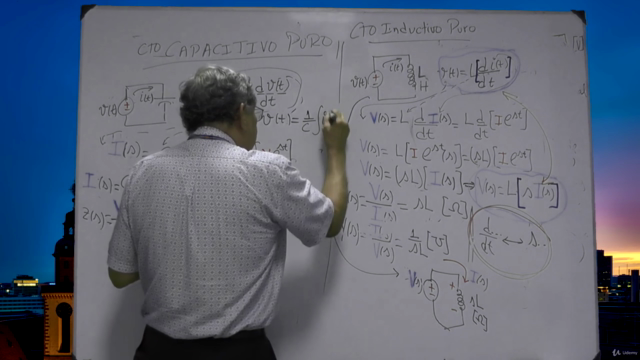 CTO CAPACITIVO PURO
i(t)
v(t)
dv(t)
dt
v(t) = 1/C ∫
I(s)
I(s) =
z(s) =
CTO Inductivo Puro
v(t)
i(t)
L
H
v(t) = L [d i(t)/dt]
V(s) = L d/dt I(s) = L d/dt [I e^st]
V(s) = L [I e^st (s)] = (sL) [I e^st]
V(s) = (sL) [I(s)] → V(s) = L [s I(s)]
V(s)/I(s) = sL [Ω]
I(s)/V(s) = 1/sL [℧]
d../dt ↔ s..
V(s)
+
-
I(s)
sL
[Ω]
Udemy